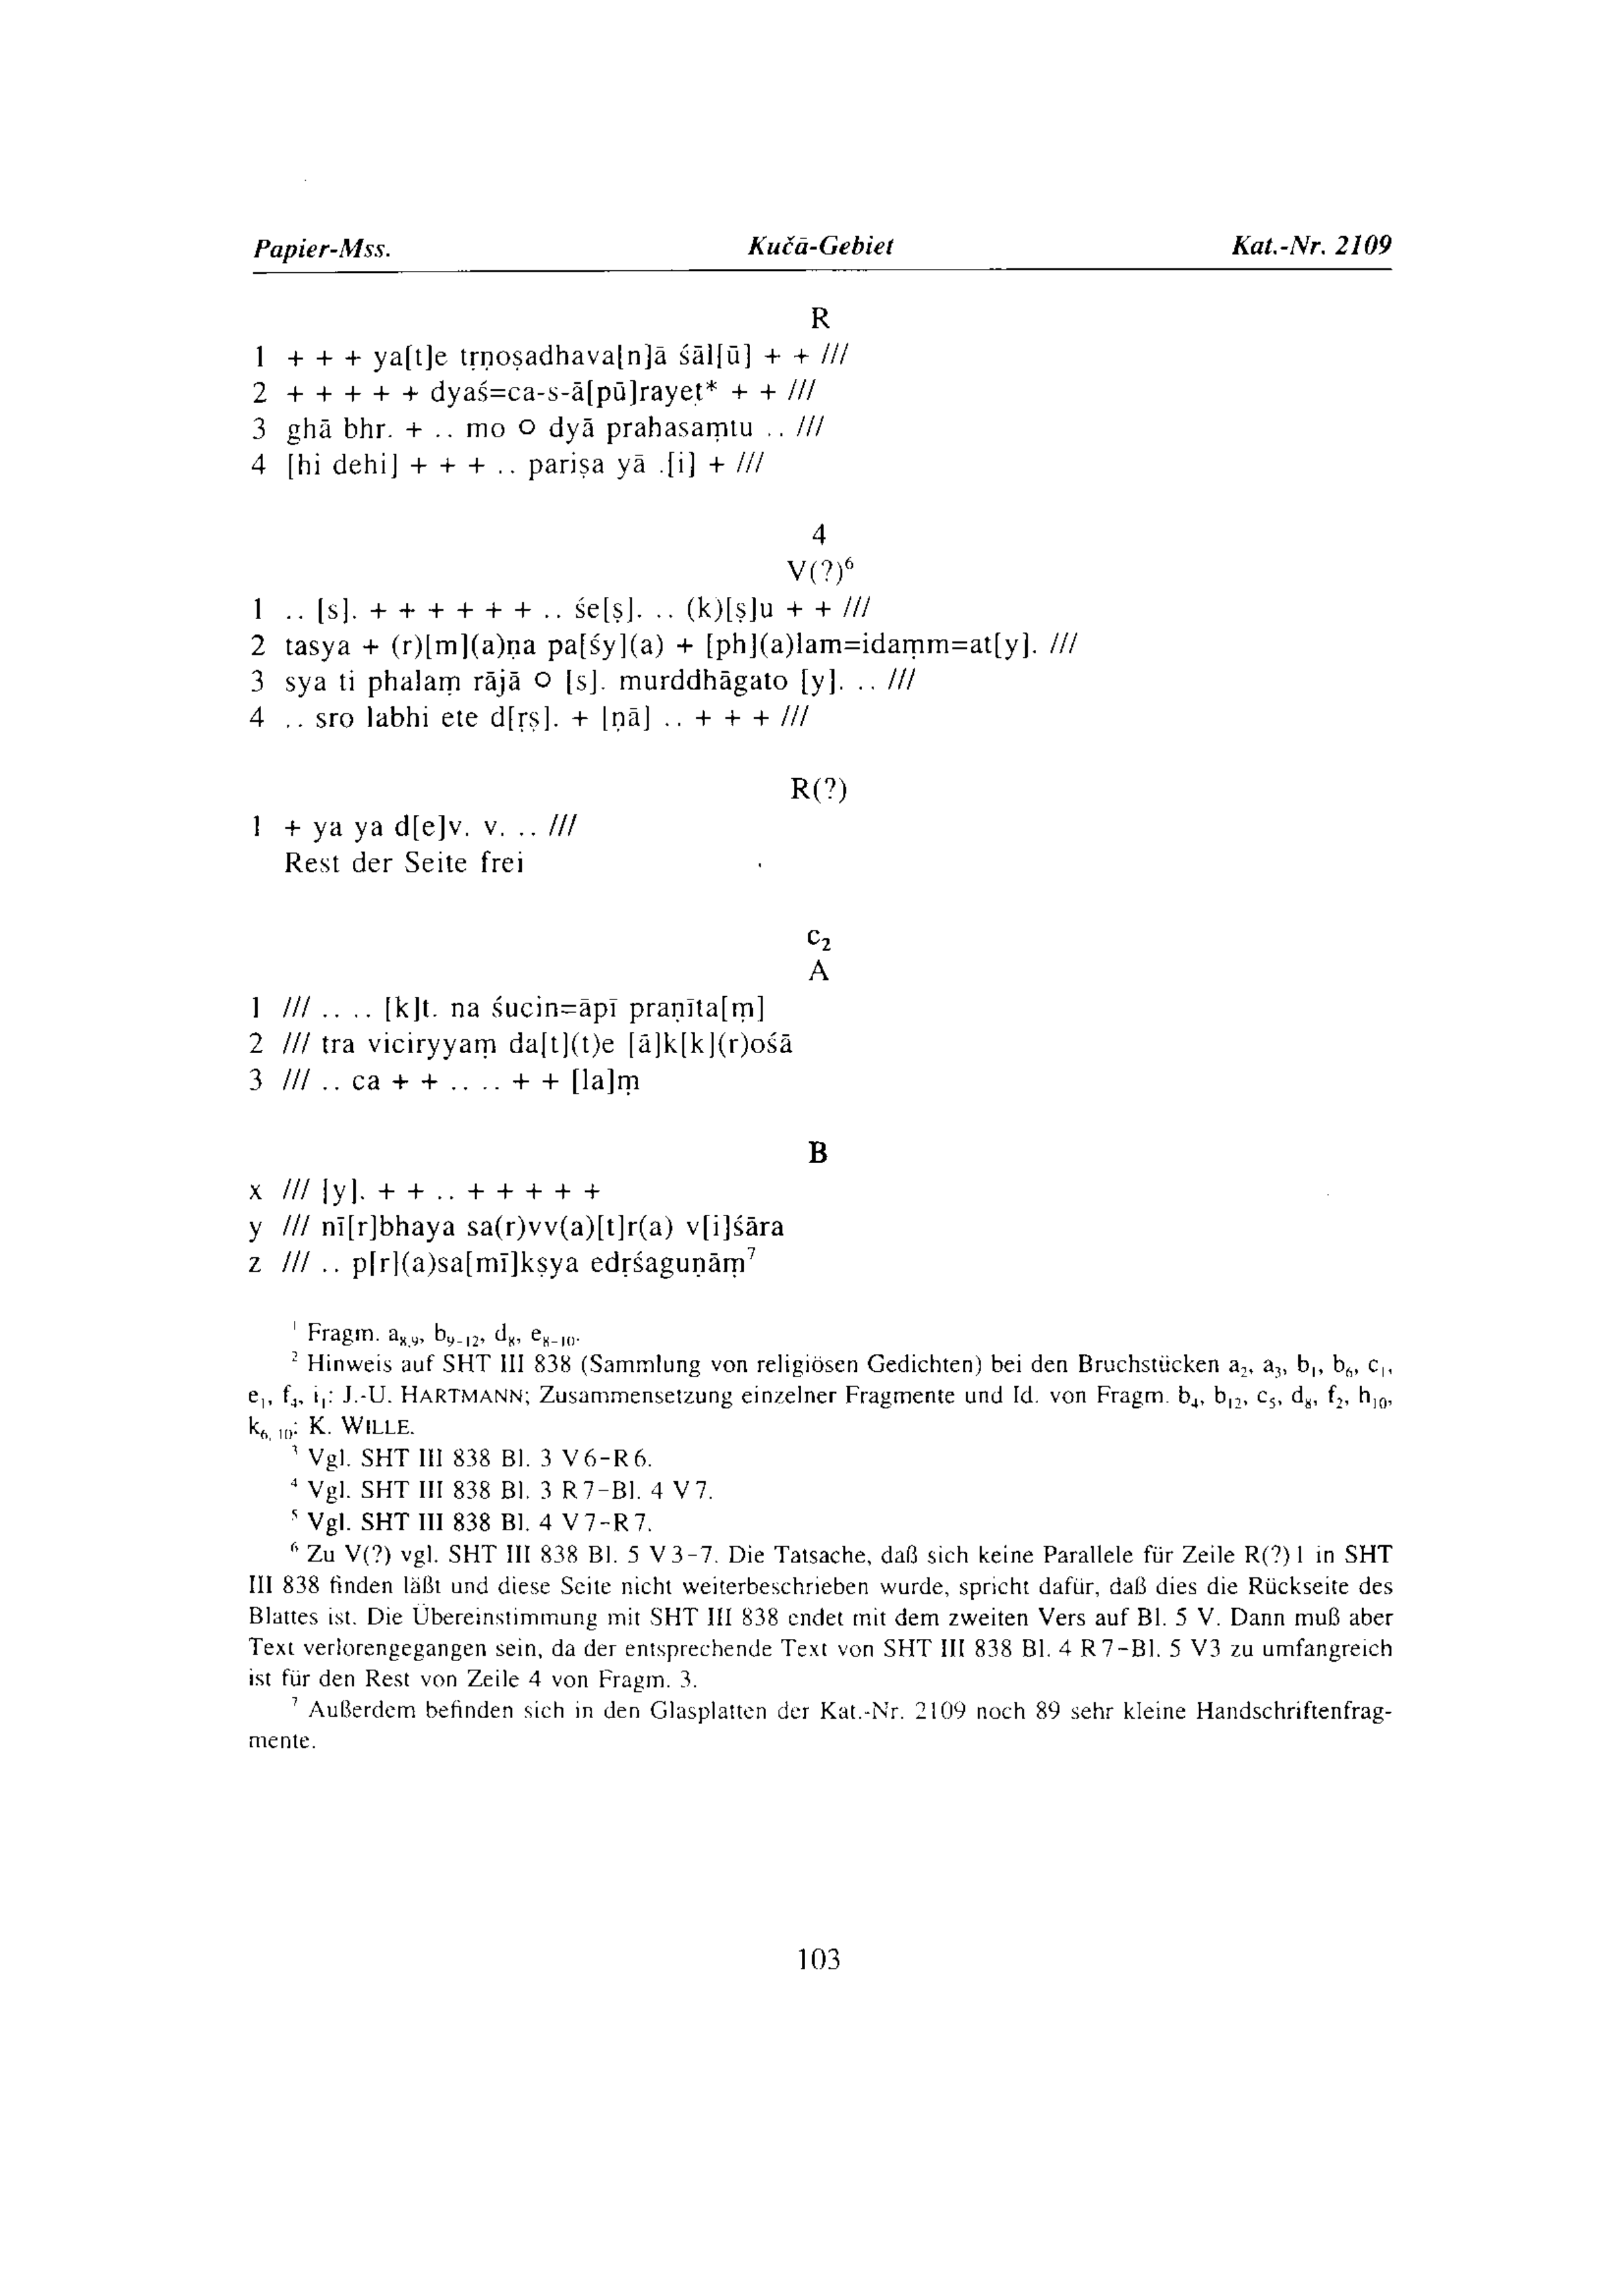 Papier-Mss. Kučā-Gebiet Kat.-Nr. 2109
R
1 + + + ya[t]e tṛṇoṣadhava[n]ā śāl[ū] + + ///
2 + + + + + dyaś=ca-s-ā[pū]rayet* + + ///
3 ghā bhr. + .. mo O dyā prahasaṃtu .. ///
4 [hi dehi] + + + .. pariṣa yā .[i] + ///
4
V(?)⁶
1 .. [s]. + + + + + + .. śe[ṣ]. .. (k)[ṣ]u + + ///
2 tasya + (r)[m](a)ṇa pa[śy](a) + [ph](a)lam=idaṃm=at[y]. ///
3 sya ti phalaṃ rājā O [s]. murddhāgato [y]. .. ///
4 .. sro labhi ete d[ṛṣ]. + [ṇā] .. + + + ///
R(?)
1 + ya ya d[e]v. v. .. ///
Rest der Seite frei
c₂
A
1 /// .. .. [k]t. na śucin=āpī praṇīta[ṃ]
2 /// tra viciryyaṃ da[t](t)e [ā]k[k](r)ośā
3 /// .. ca + + .. .. + + [la]ṃ
B
x /// [y]. + + .. + + + + +
y /// nī[r]bhaya sa(r)vv(a)[t]r(a) v[i]śāra
z /// .. p[r](a)sa[mī]kṣya edṛśaguṇāṃ⁷
¹ Fragm. a₈,₉, b₉₋₁₂, d₈, e₈₋₁₀.
² Hinweis auf SHT III 838 (Sammlung von religiösen Gedichten) bei den Bruchstücken a₂, a₃, b₁, b₆, c₁,
e₁, f₄, i₁: J.-U. HARTMANN; Zusammensetzung einzelner Fragmente und Id. von Fragm. b₄, b₁₂, c₅, d₈, f₂, h₁₀,
k₆, ₁₀: K. WILLE.
³ Vgl. SHT III 838 Bl. 3 V 6-R 6.
⁴ Vgl. SHT III 838 Bl. 3 R 7-Bl. 4 V 7.
⁵ Vgl. SHT III 838 Bl. 4 V 7-R 7.
⁶ Zu V(?) vgl. SHT III 838 Bl. 5 V 3-7. Die Tatsache, daß sich keine Parallele für Zeile R(?) 1 in SHT
III 838 finden läßt und diese Seite nicht weiterbeschrieben wurde, spricht dafür, daß dies die Rückseite des
Blattes ist. Die Übereinstimmung mit SHT III 838 endet mit dem zweiten Vers auf Bl. 5 V. Dann muß aber
Text verlorengegangen sein, da der entsprechende Text von SHT III 838 Bl. 4 R 7-Bl. 5 V3 zu umfangreich
ist für den Rest von Zeile 4 von Fragm. 3.
⁷ Außerdem befinden sich in den Glasplatten der Kat.-Nr. 2109 noch 89 sehr kleine Handschriftenfrag-
mente.
103